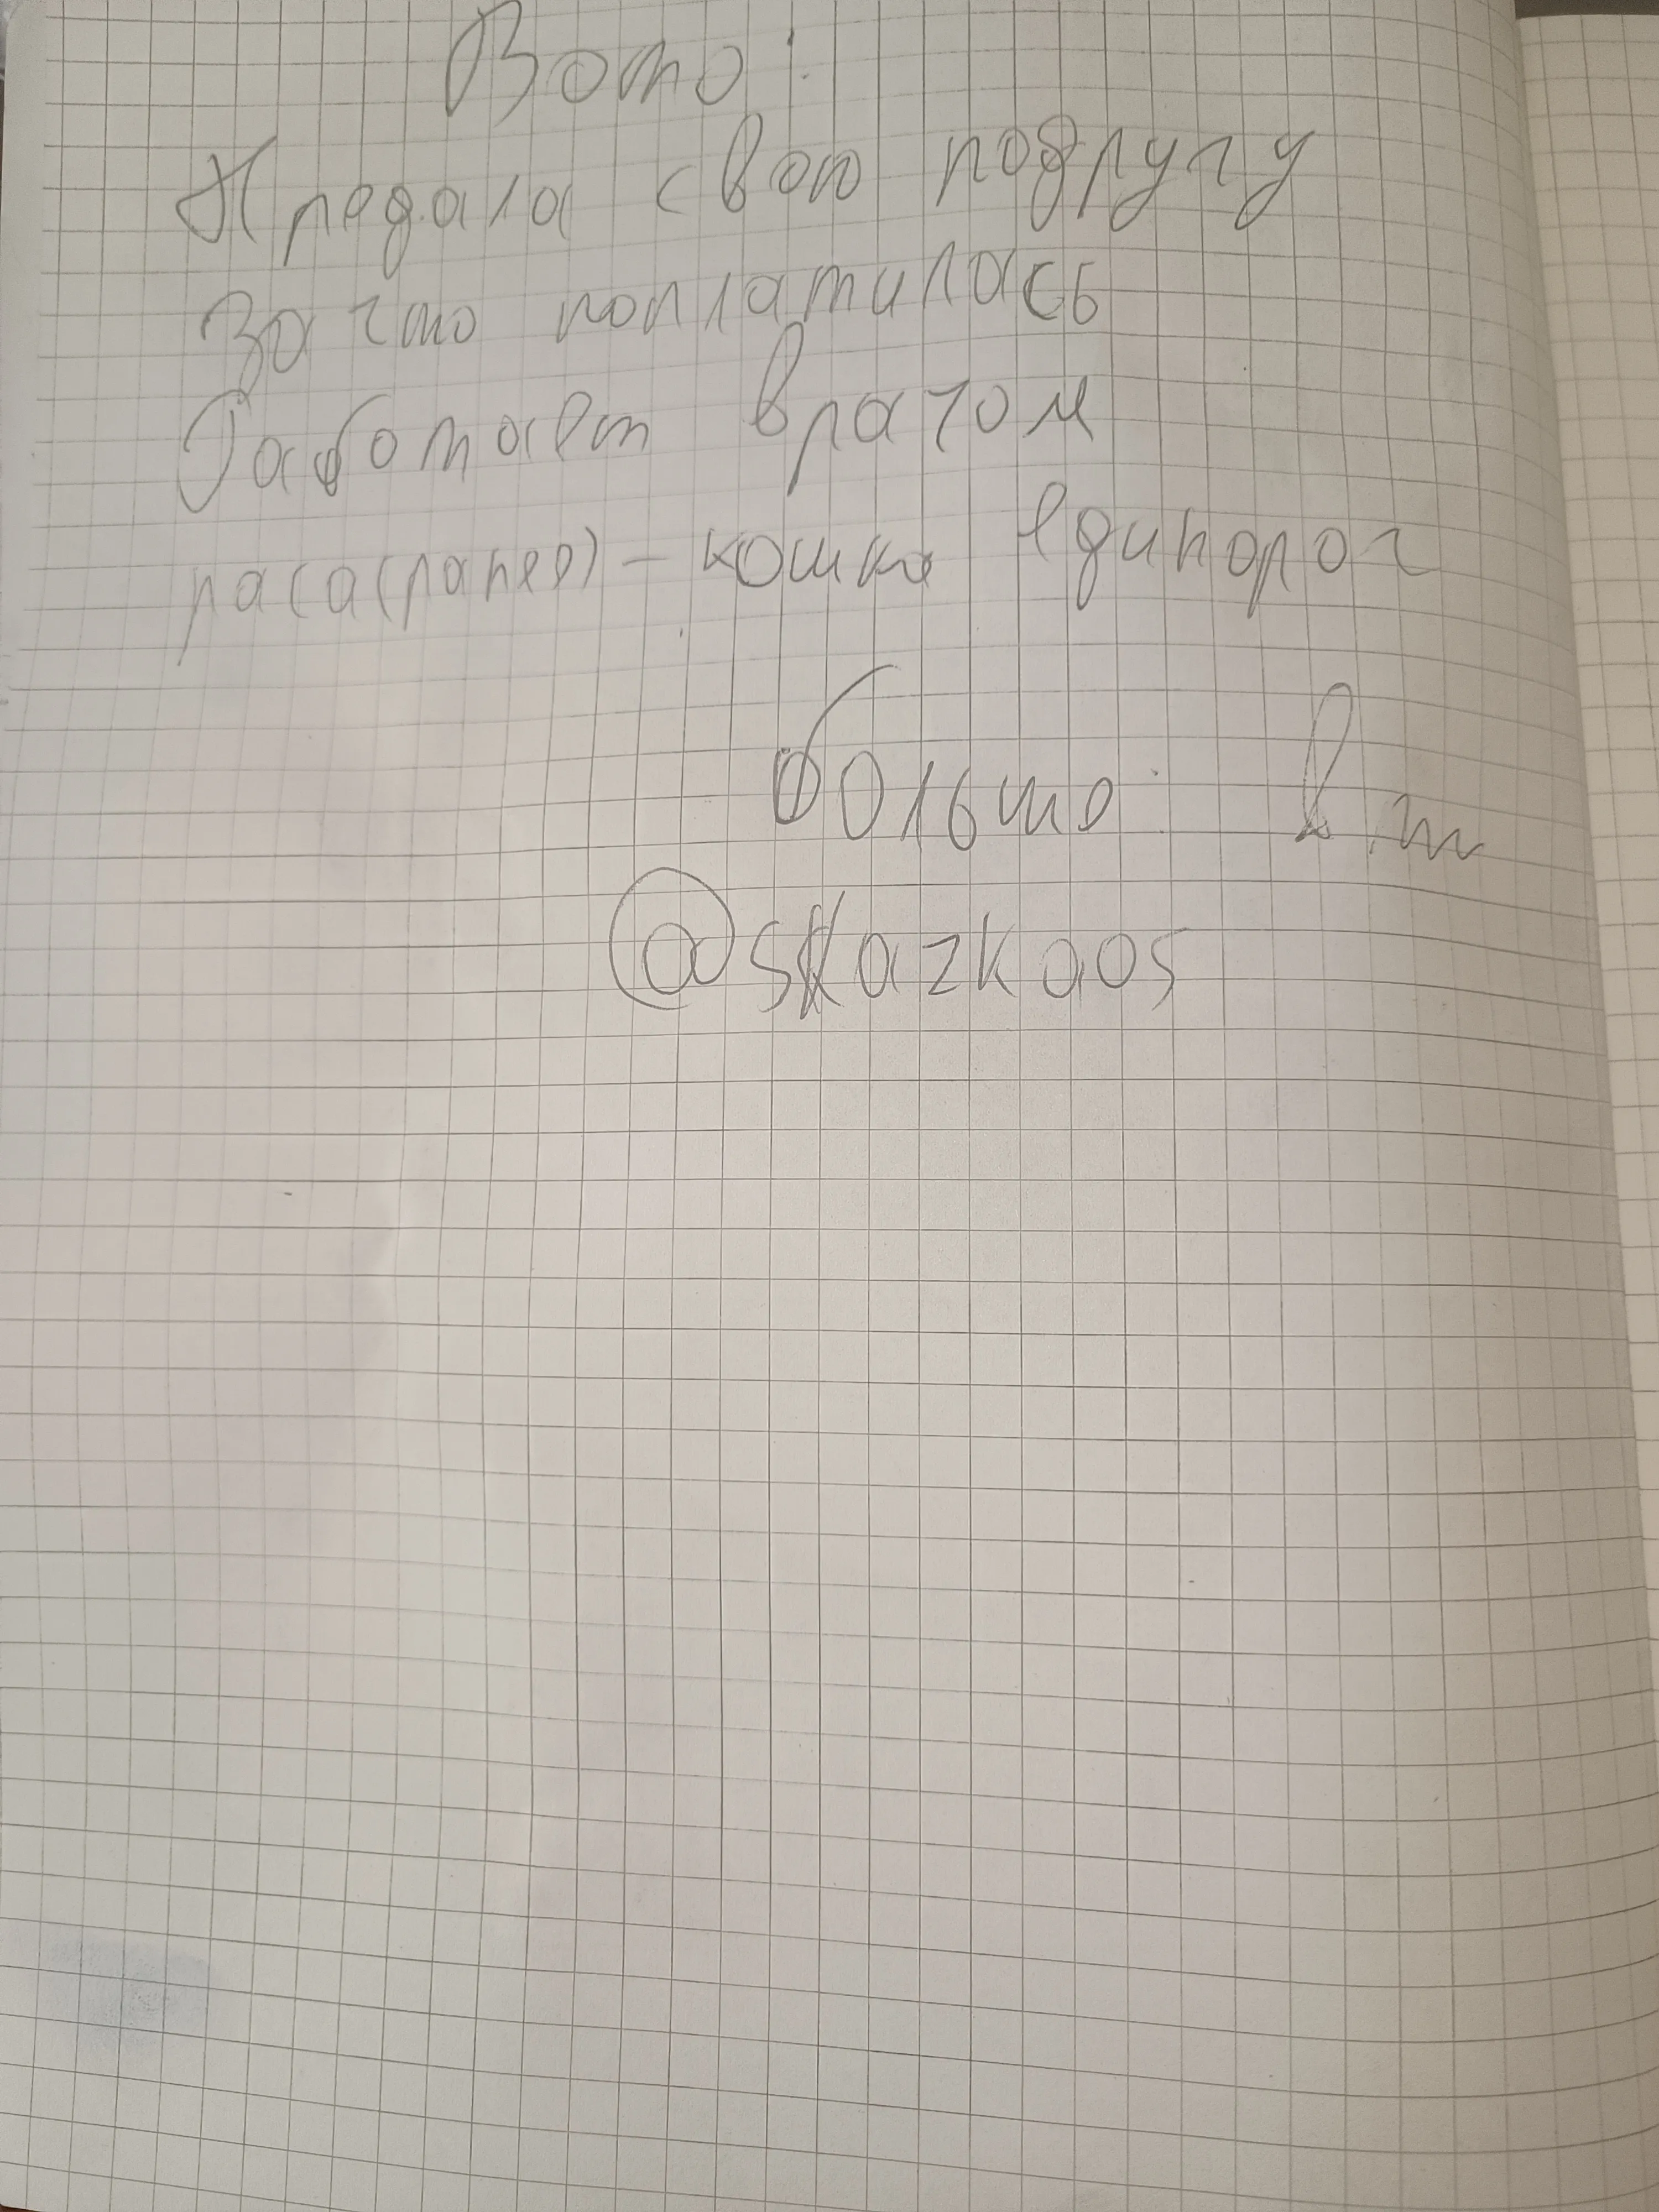 Вото:
Предала свою подругу
За что поплатилась
Работает врачом
раса(ранее) - кошка единорог
больше в тт
@skazkaos